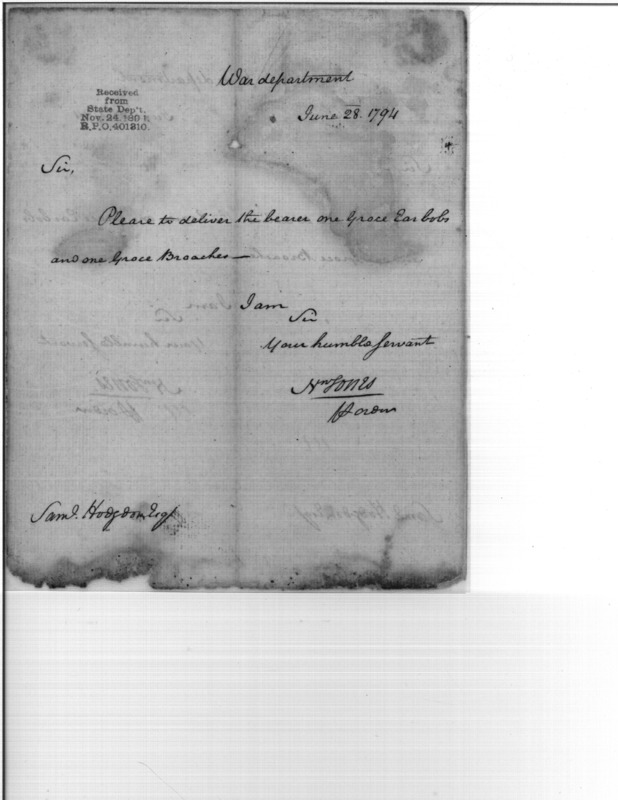 War department
June 28. 1794
Received
from
State Dep't.
Nov. 24.
R.P.O. 401310.
Sir,
Please to deliver the bearer one Groce Ear bobs
and one Groce Broaches—
I am
Sir
Your humble Servant
Nn JONES
Saml. Hodgdon, Esqr